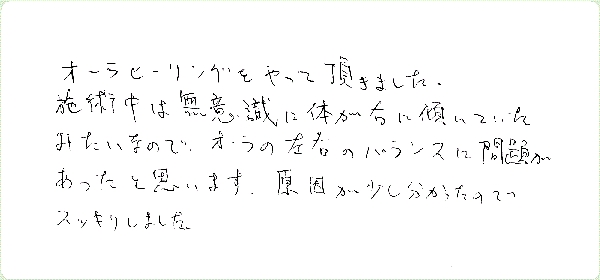 オーラヒーリングをやって頂きました。
施術中は無意識に体が右に傾いていた
みたいなので、オーラの左右のバランスに問題が
あったと思います。原因が少し分かったので
スッキリしました。